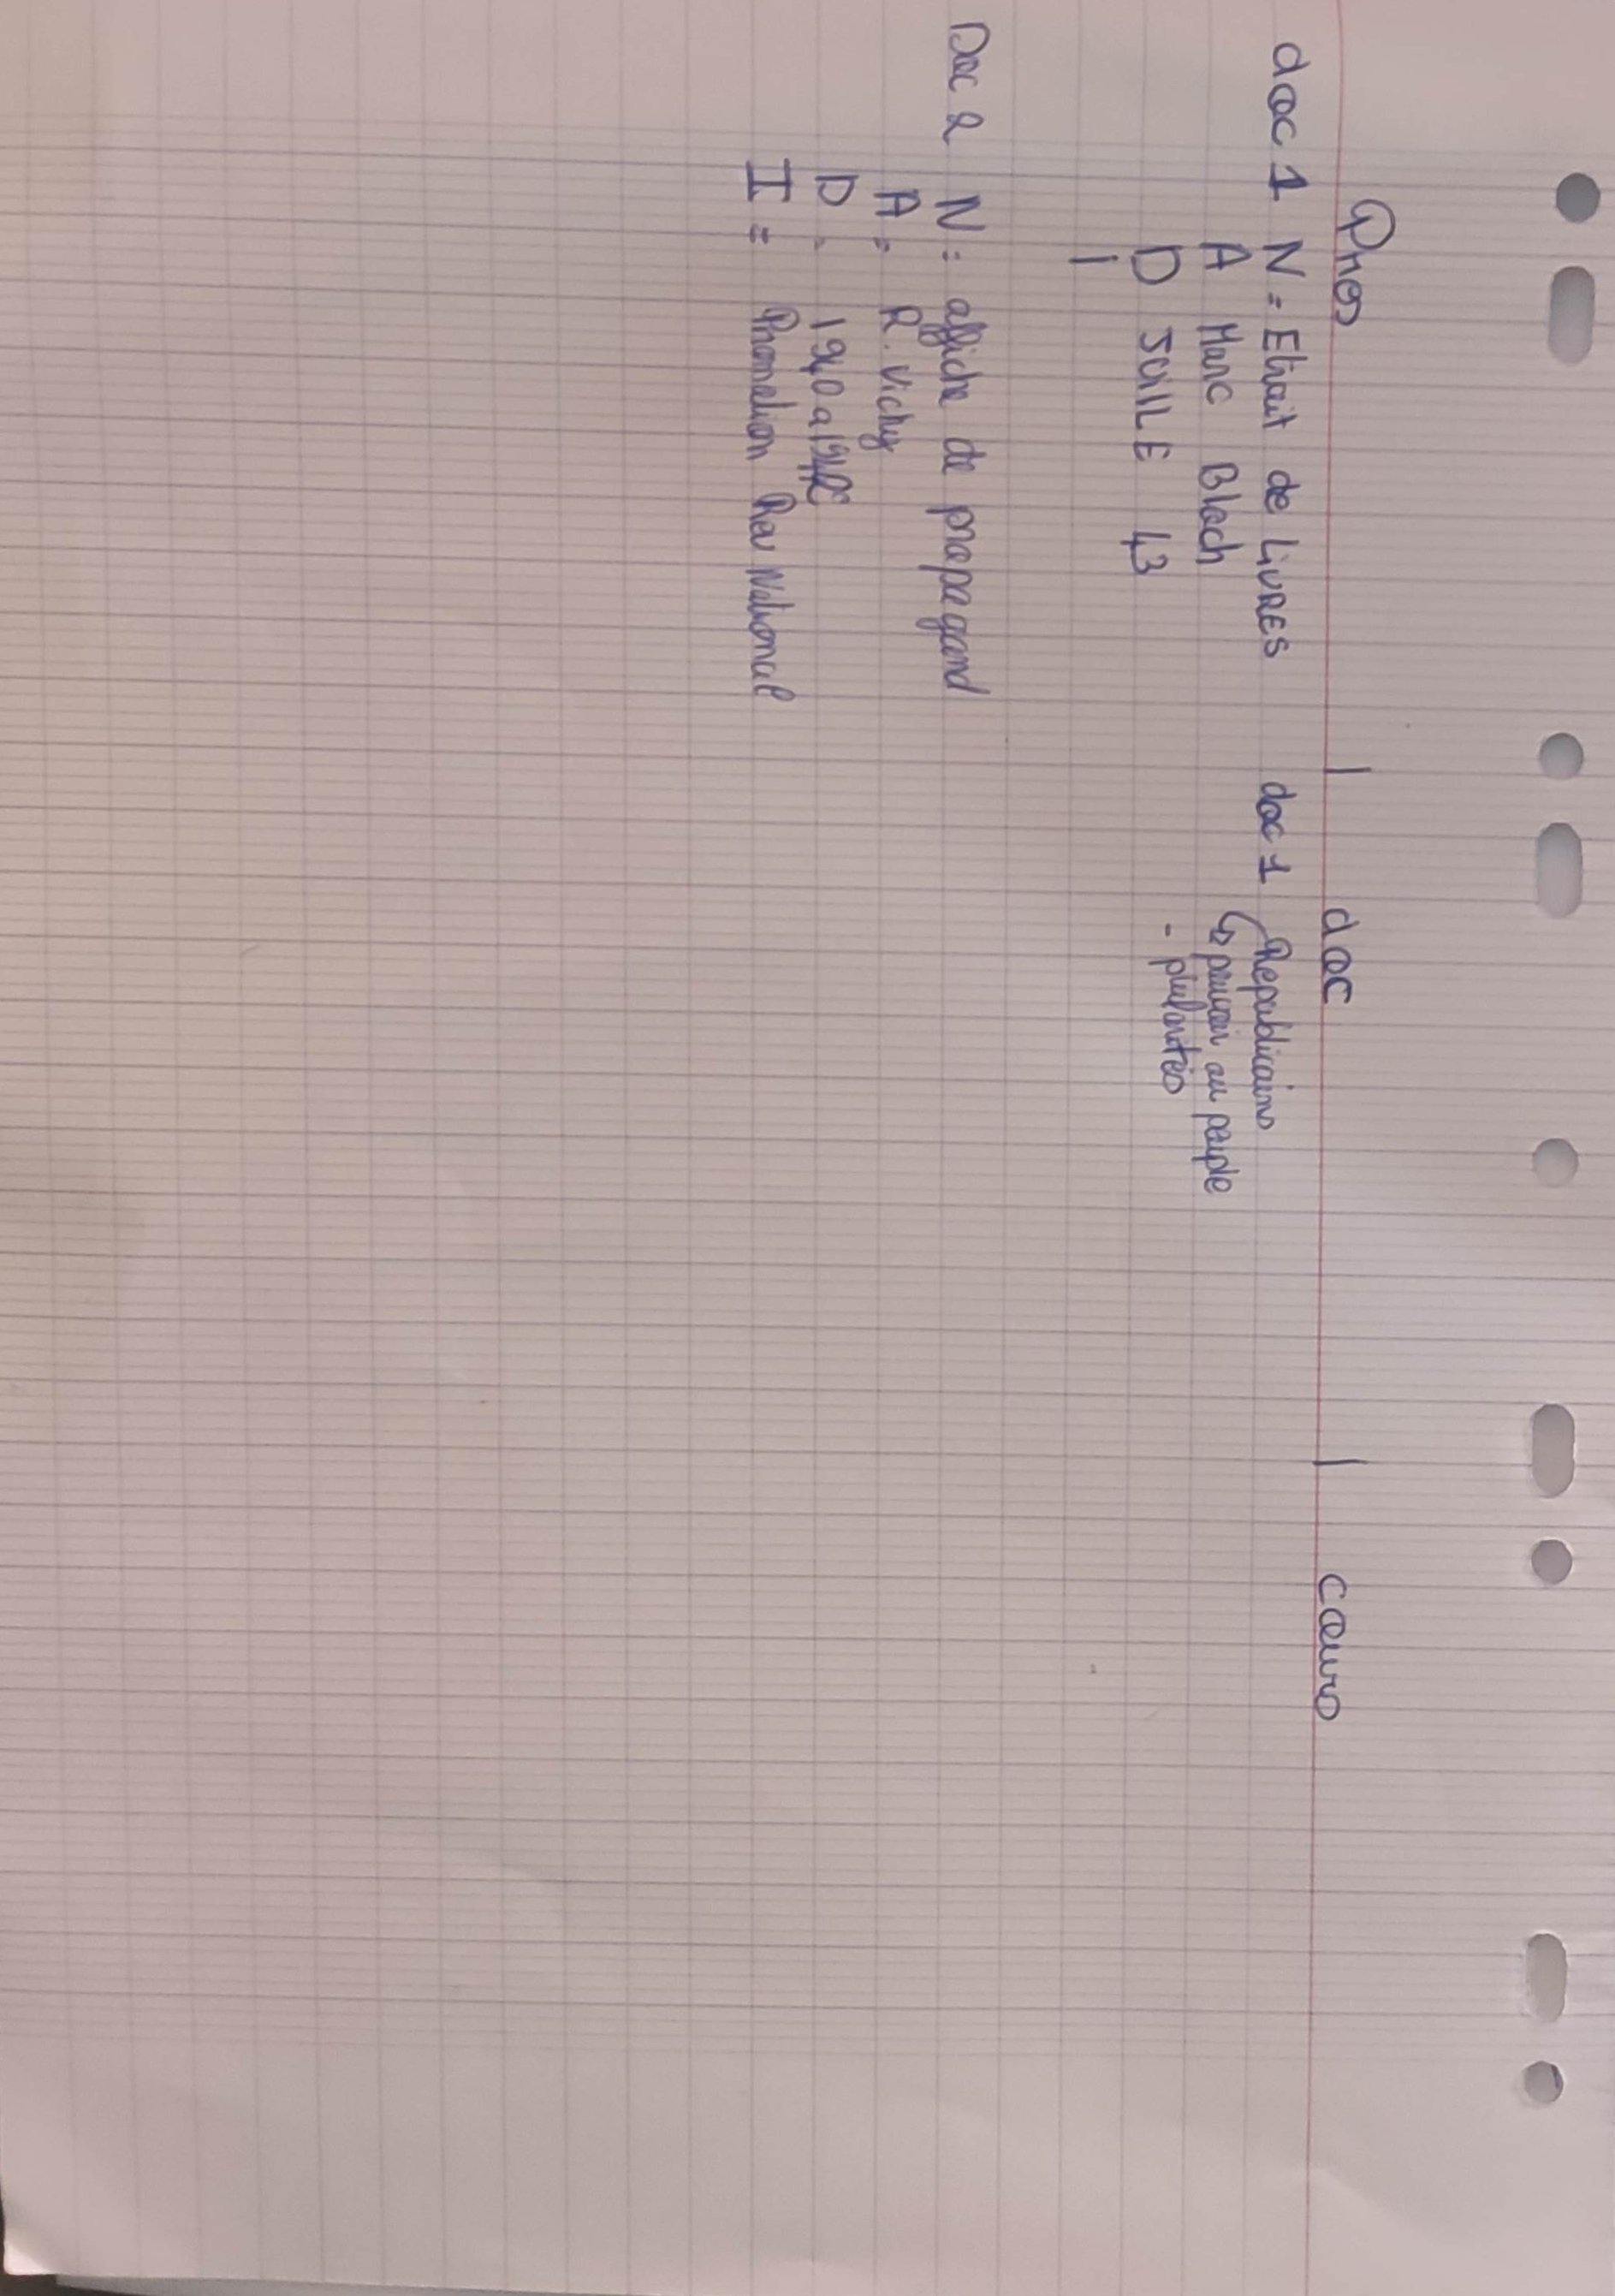 Pres
doc
cours
doc 1 N = Etrait de LiVRES
A Marc Bloch
D JUILE 43
I
Doc 2 N : affiche de propagand
A = R. Vichy
D = 1940 a
I = Promotion Rev National
doc 1 Republicains
↳ pouvoir au peuple
-